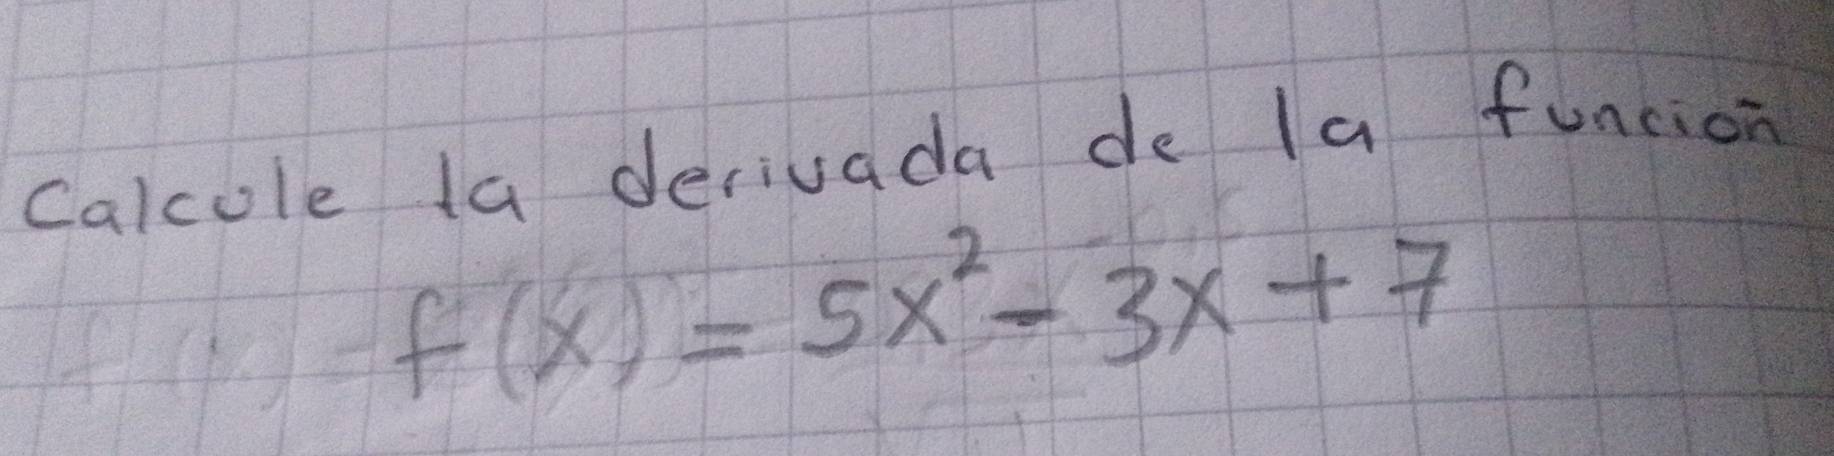 Calcule la derivada de la función
f(x) = 5x² - 3x + 7